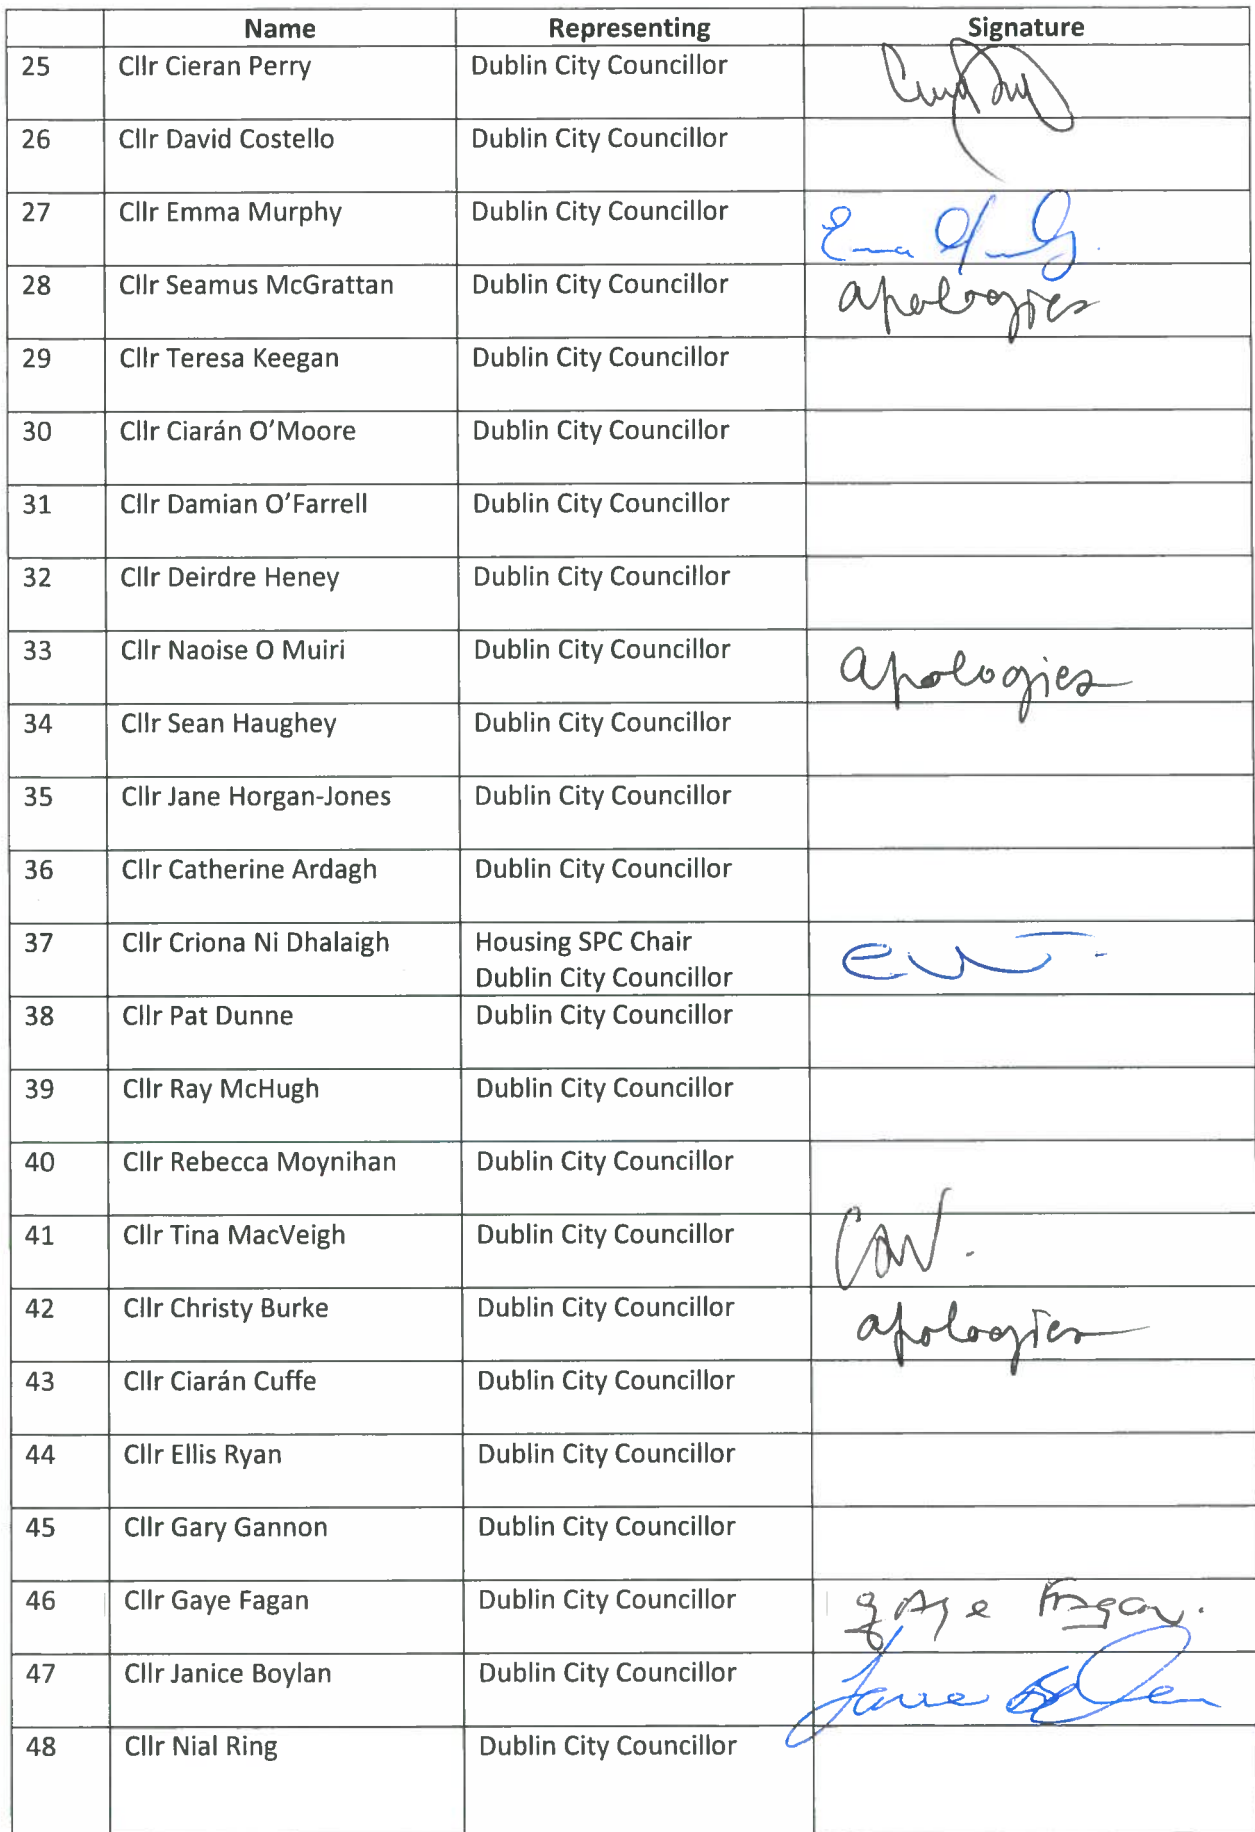 Name Representing Signature
25 Cllr Cieran Perry Dublin City Councillor
26 Cllr David Costello Dublin City Councillor
27 Cllr Emma Murphy Dublin City Councillor
28 Cllr Seamus McGrattan Dublin City Councillor apologies
29 Cllr Teresa Keegan Dublin City Councillor
30 Cllr Ciarán O'Moore Dublin City Councillor
31 Cllr Damian O'Farrell Dublin City Councillor
32 Cllr Deirdre Heney Dublin City Councillor
33 Cllr Naoise O Muiri Dublin City Councillor apologies
34 Cllr Sean Haughey Dublin City Councillor
35 Cllr Jane Horgan-Jones Dublin City Councillor
36 Cllr Catherine Ardagh Dublin City Councillor
37 Cllr Criona Ni Dhalaigh Housing SPC Chair
Dublin City Councillor
38 Cllr Pat Dunne Dublin City Councillor
39 Cllr Ray McHugh Dublin City Councillor
40 Cllr Rebecca Moynihan Dublin City Councillor
41 Cllr Tina MacVeigh Dublin City Councillor
42 Cllr Christy Burke Dublin City Councillor apologies
43 Cllr Ciarán Cuffe Dublin City Councillor
44 Cllr Ellis Ryan Dublin City Councillor
45 Cllr Gary Gannon Dublin City Councillor
46 Cllr Gaye Fagan Dublin City Councillor gaye Fagan.
47 Cllr Janice Boylan Dublin City Councillor
48 Cllr Nial Ring Dublin City Councillor